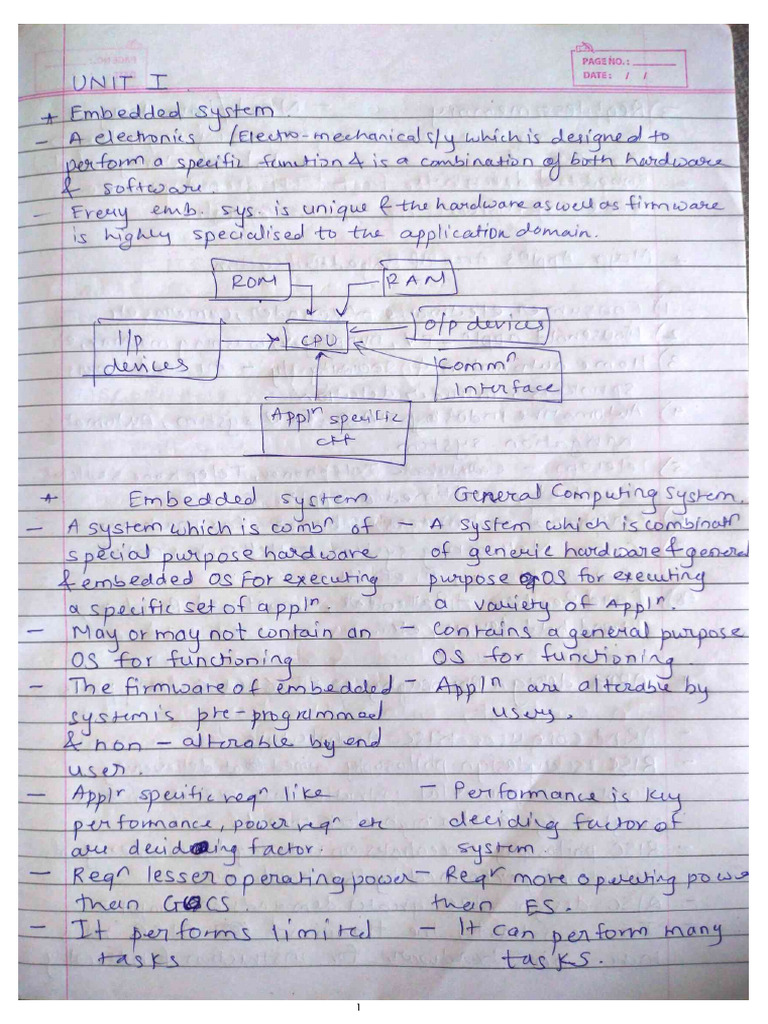 PAGE NO.:
DATE: / /
UNIT I
* Embedded system.
- A electronics /Electro-mechanical s/y which is designed to
perform a specific function & is a combination of both hardware
& software.
- Every emb. sys. is unique & the hardware as well as firmware
is highly specialised to the application domain.
ROM
RAM
I/p
devices
CPU
O/p devices
Commⁿ
Interface
Applⁿ specific
ckt
* Embedded system
General Computing System.
- A system which is combⁿ of
special purpose hardware
& embedded OS for executing
a specific set of applⁿ.
- A system which is combinatⁿ
of generic hardware & general
purpose OS for executing
a variety of Applⁿ.
- May or may not contain an
OS for functioning
- Contains a general purpose
OS for functioning.
- The firmware of embedded
system is pre-programmed
& non-alterable by end
user.
- Applⁿ are alterable by
users.
- Applⁿ specific reqⁿ like
performance, power reqⁿ etc
are deciding factor.
- Performance is key
deciding factor of
system.
- Reqⁿ lesser operating power
than GCS
- Reqⁿ more operating power
than ES.
- It performs limited
tasks
- It can perform many
tasks.
1